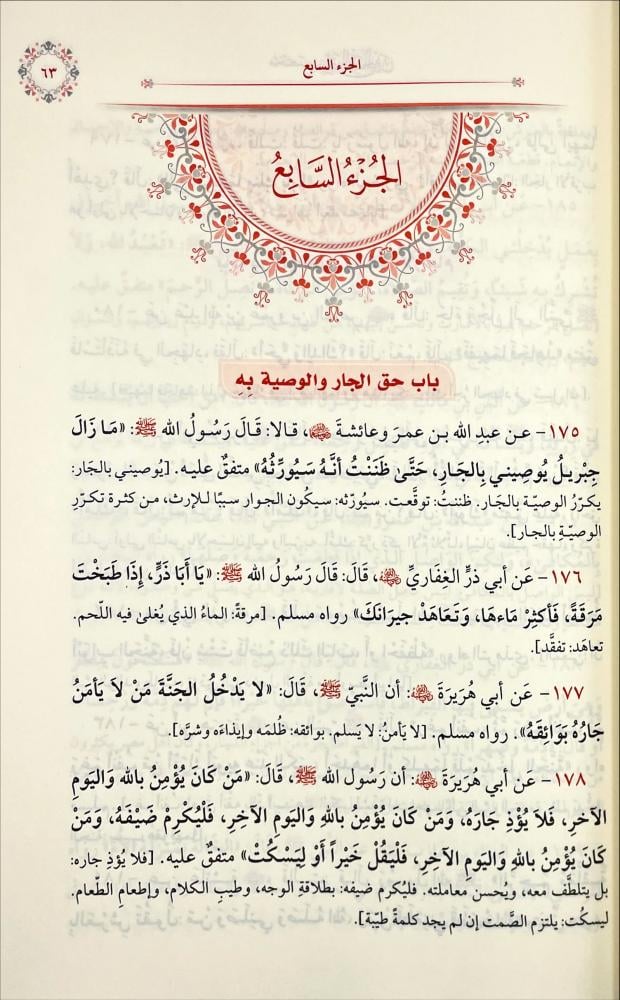 الجزء السابع
٦٣
الجُزْءُ السَّابِعُ
باب حق الجار والوصية بِهِ
١٧٥ - عن عبدِ الله بن عمرَ وعائشةَ ﷺ، قالا: قَالَ رَسُولُ الله ﷺ: «مَا زَالَ
جِبْرِيلُ يُوصِينِي بِالجَارِ، حَتَّىٰ ظَنَنْتُ أنَّهُ سَيُورِّثُهُ» متفقٌ عليه. [يُوصيني بالجَار:
يكرّرُ الوصيّة بالجَار. ظننتُ: توقَّعت. سيُورّثه: سيكون الجوار سببًا للإرث، من كثرة تكرّرِ
الوصيّةِ بالجارِ].
١٧٦ - عَن أبي ذرٍّ الغِفَاريِّ، قَالَ: قَالَ رَسُولُ الله ﷺ: «يَا أَبَا ذَرٍّ، إِذَا طَبَخْتَ
مَرَقَةً، فَأكثِرْ مَاءهَا، وَتَعَاهَدْ جيرَانَكَ» رواه مسلم. [مرقةً: الماءُ الذي يُغلىٰ فيه اللّحم.
تعاهد: تفقَّد].
١٧٧ - عَن أبي هُرَيرَةَ: أن النَّبيّ ﷺ، قَالَ: «لا يَدْخُلُ الجَنَّةَ مَنْ لاَ يَأمَنُ
جَارُهُ بَوَائِقَهُ». رواه مسلم. [لا يَأمنُ: لا يَسلم. بوائقه: ظُلمَه وإيذاءَه وشرَّه].
١٧٨ - عَن أبي هُرَيرَةَ: أن رَسُول الله ﷺ، قَالَ: «مَنْ كَانَ يُؤْمِنُ بالله وَاليَومِ
الآخرِ، فَلاَ يُؤْذِ جَارَهُ، وَمَنْ كَانَ يُؤْمِنُ باللهِ وَاليَومِ الآخِرِ، فَلْيُكْرِمْ ضَيْفَهُ، وَمَنْ
كَانَ يُؤْمِنُ باللهِ وَاليَومِ الآخِرِ، فَلْيَقُلْ خَيْراً أَوْ لِيَسكُتْ» متفقٌ عليه. [فلا يؤذِ جاره:
بل يتلطَّف معه، ويُحسن معاملته. فليُكرم ضيفه: بطلاقةِ الوجه، وطيبِ الكلام، وإطعامِ الطّعام.
ليسكُت: يلتزم الصَّمت إن لم يجد كلمةً طيّبة].